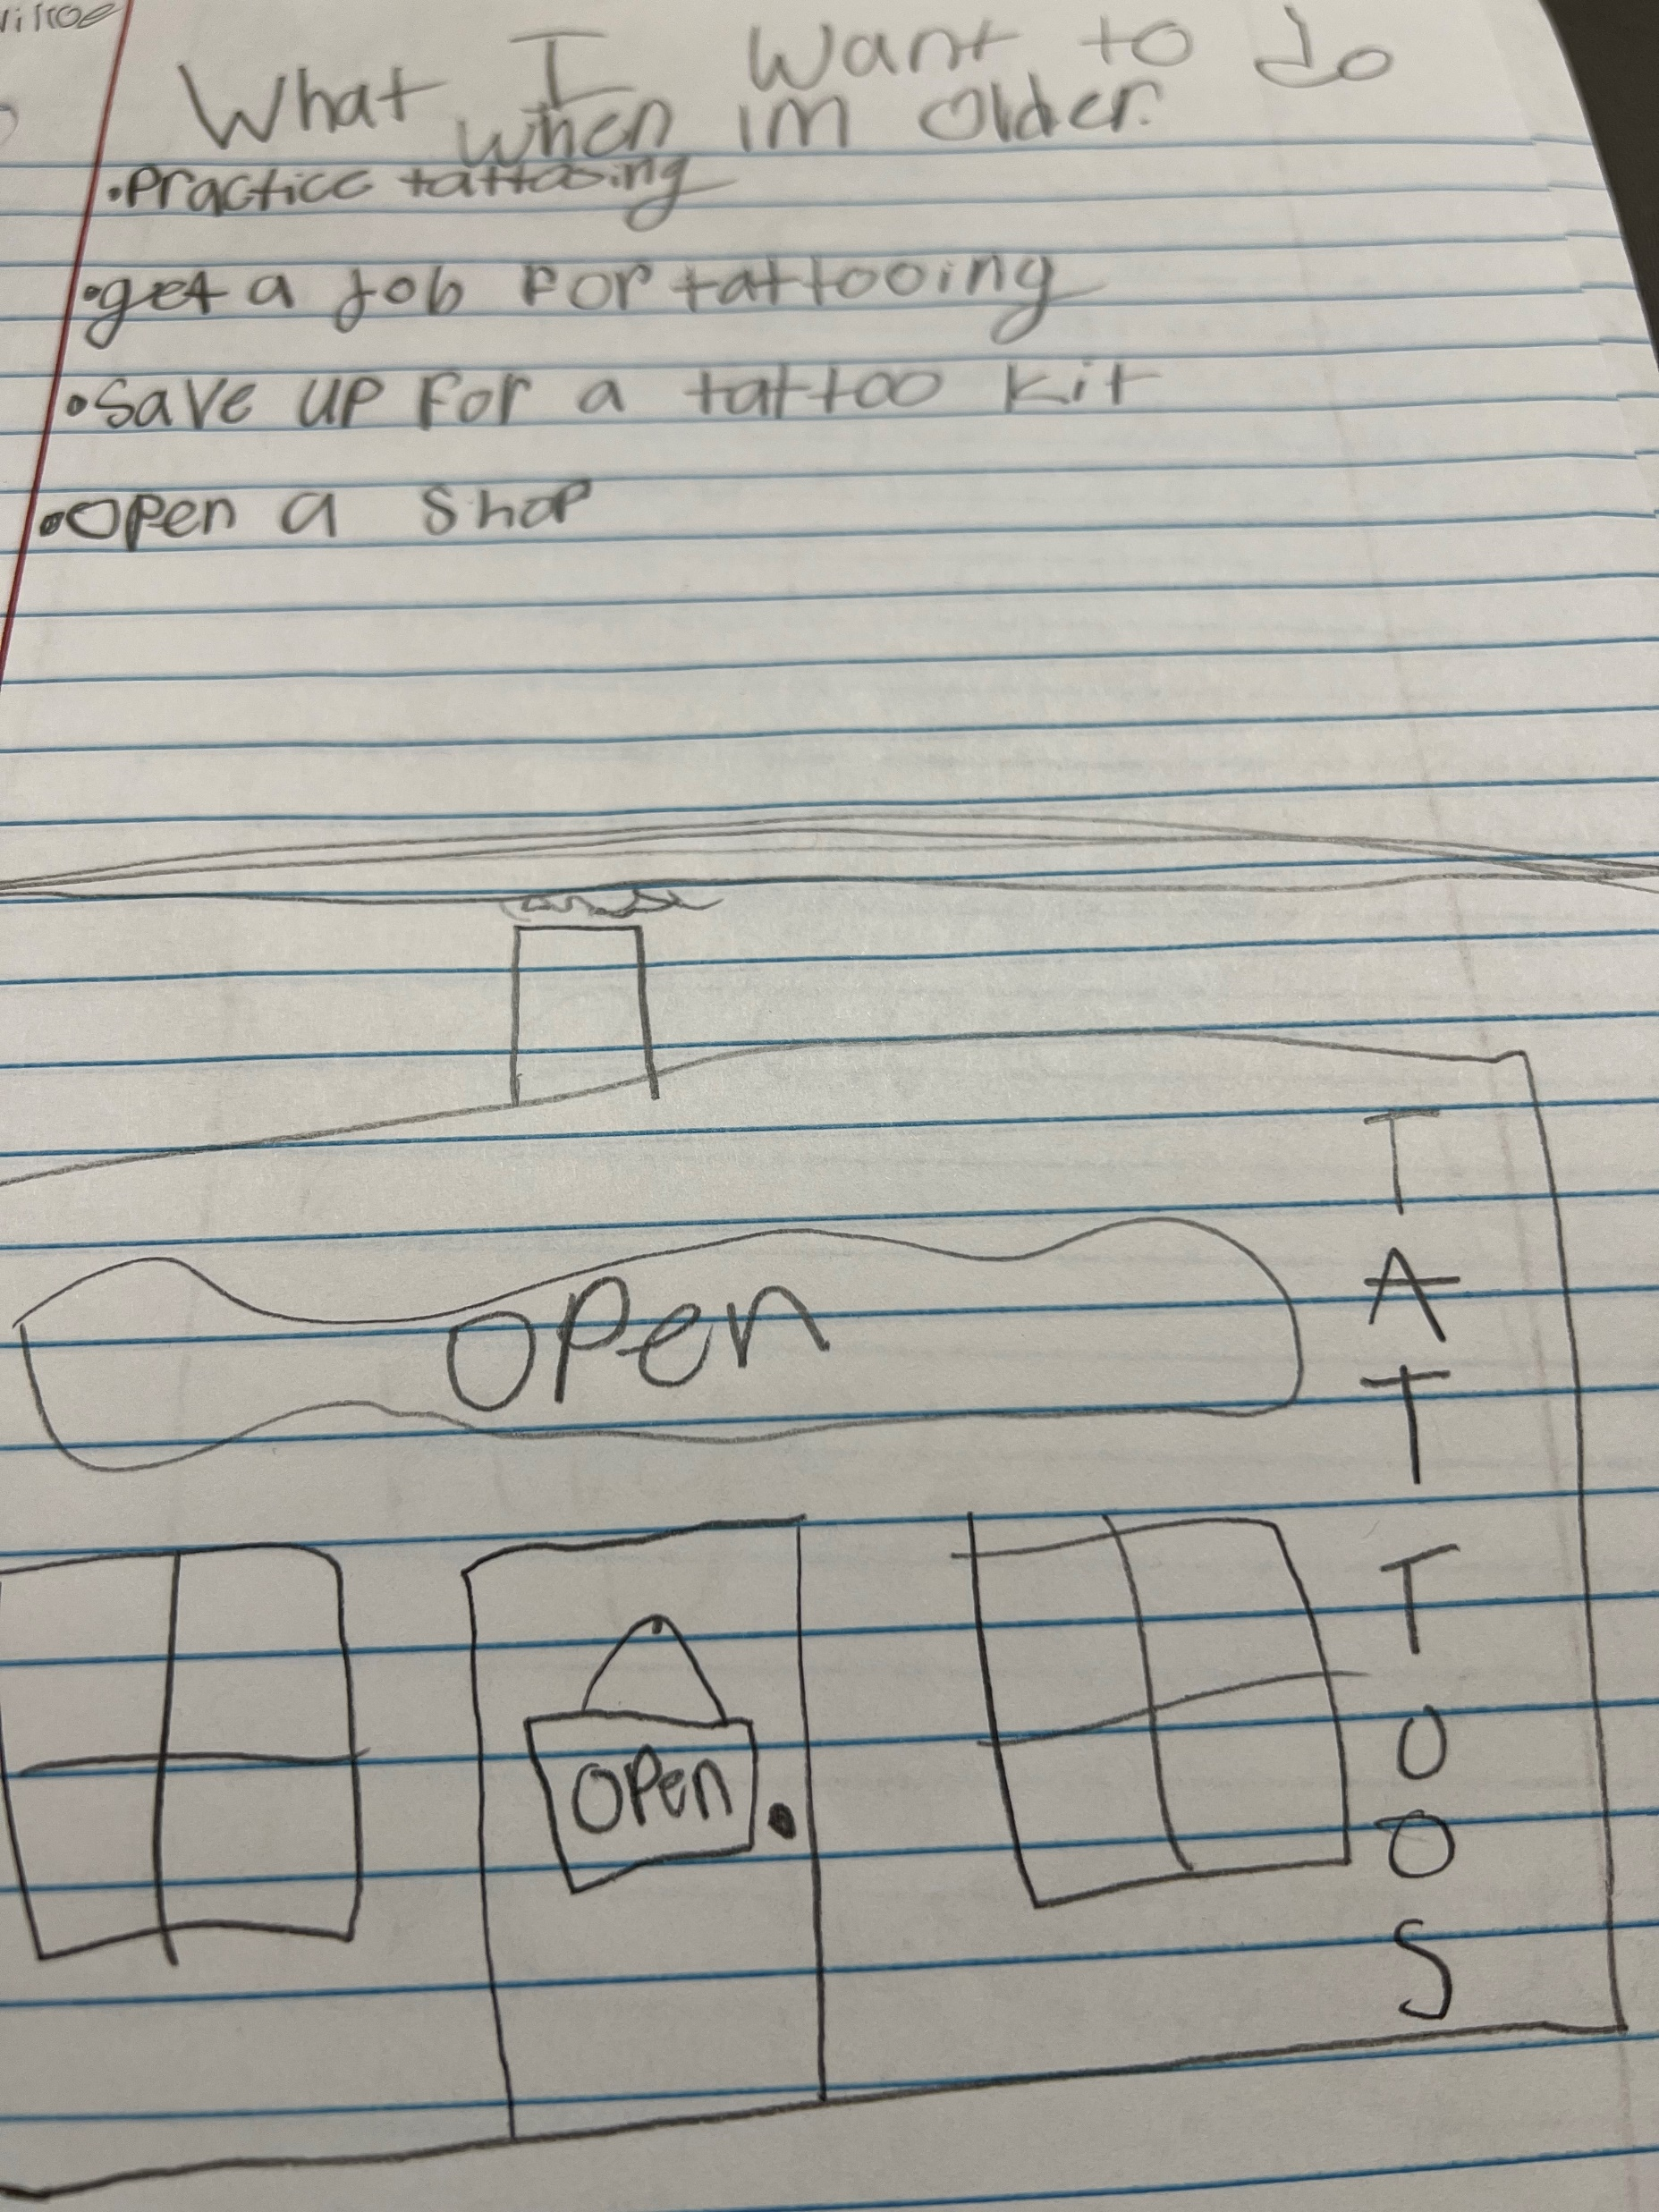 What I want to do
when im older.
•Practice tattooing
•get a Job For tattooing
•Save up For a tattoo kit
•open a shop
open
TATTOOS
open